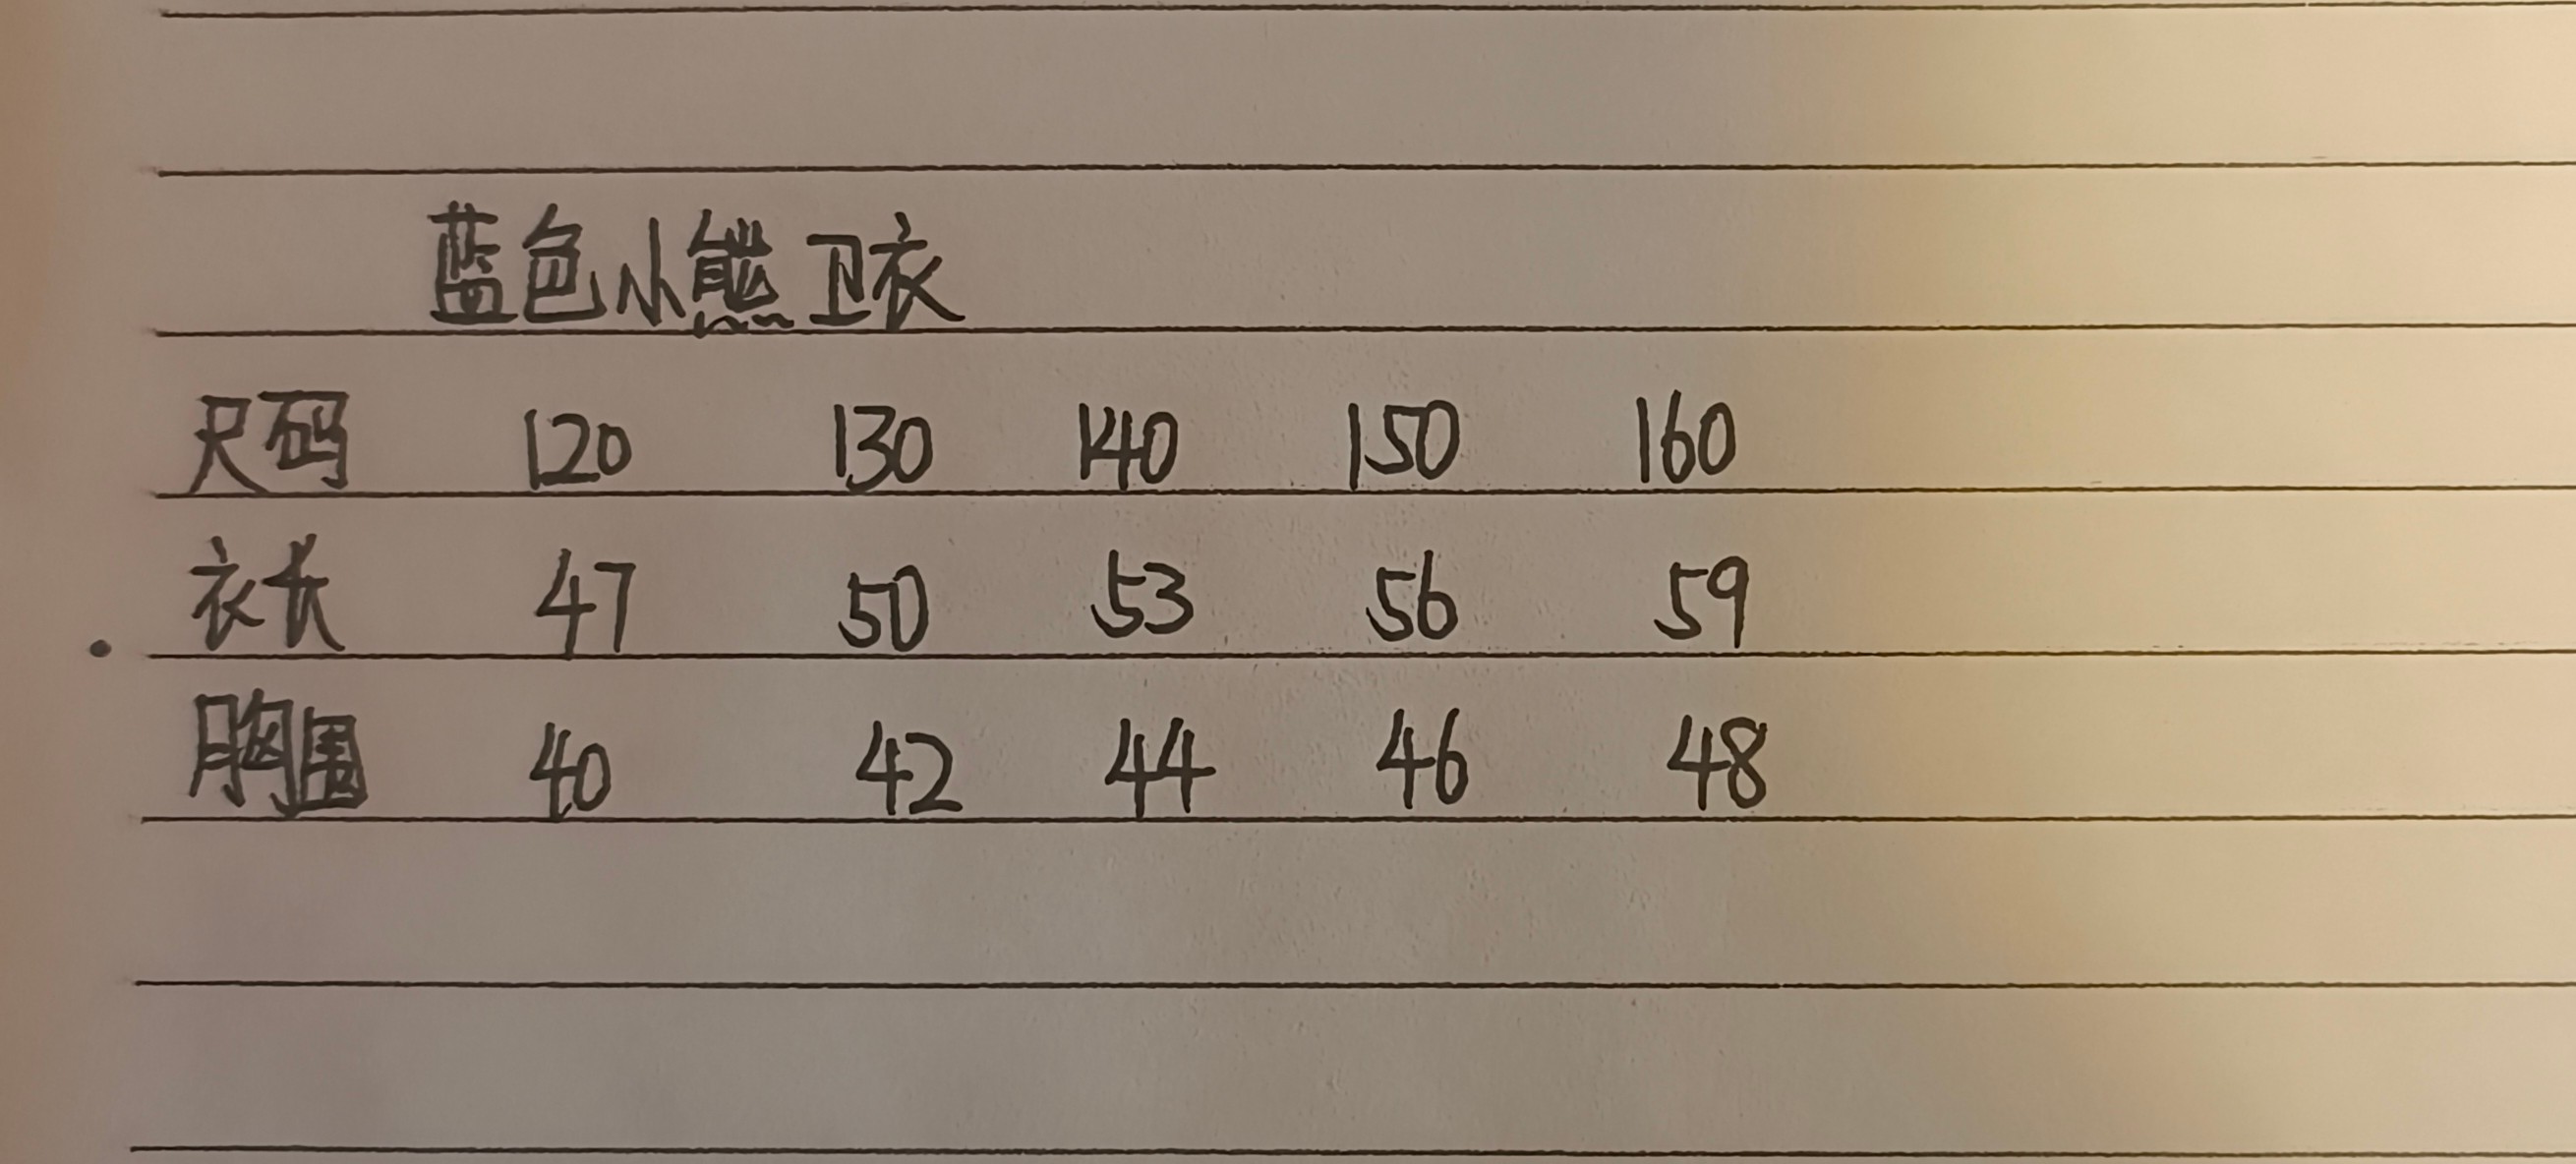 蓝色小熊卫衣
尺码 120 130 140 150 160
衣长 47 50 53 56 59
胸围 40 42 44 46 48